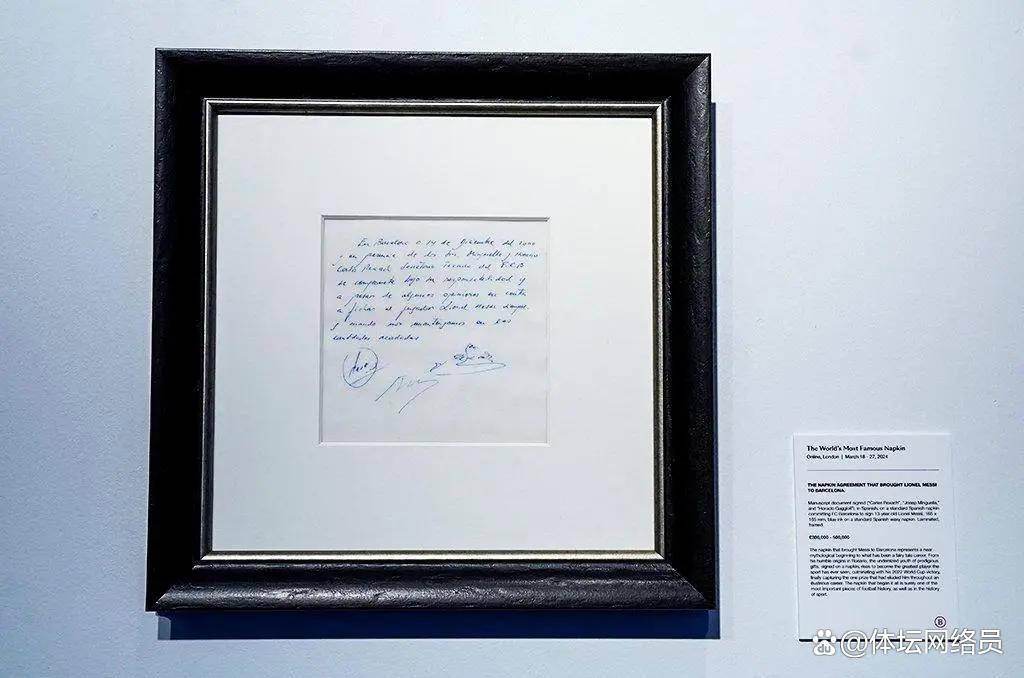 En Barcelona a 14 de diciembre del 2000
y en presencia de los Sres. Minguella y Horacio
Carlos Rexach Secretario Técnico del F.C.B
se compromete bajo su responsabilidad y
a pesar de algunas opiniones en contra
a fichar al jugador Lionel Messi siempre
y cuando nos mantengamos en las
cantidades acordadas
The World's Most Famous Napkin
Online, London | March 18 - 27, 2024
THE NAPKIN AGREEMENT THAT BROUGHT LIONEL MESSI
TO BARCELONA.
Manuscript document signed ("Carles Rexach", "Josep Minguella,"
and "Horacio Gaggioli"), in Spanish, on a standard Spanish napkin
committing FC Barcelona to sign 13-year old Lionel Messi, 165 x
165 mm, blue ink on a standard Spanish waxy napkin. Laminated,
framed.
£300,000 - 500,000
The napkin that brought Messi to Barcelona represents a near
mythological beginning to what has been a fairy tale career. From
his humble origins in Rosario, the undersized youth of prodigious
gifts, signed on a napkin, rises to become the greatest player the
sport has ever seen, culminating with his 2022 World Cup victory,
finally capturing the one prize that had eluded him throughout an
illustrious career. The napkin that began it all is surely one of the
most important pieces of football history, as well as in the history
of sport.
B
@体坛网络员